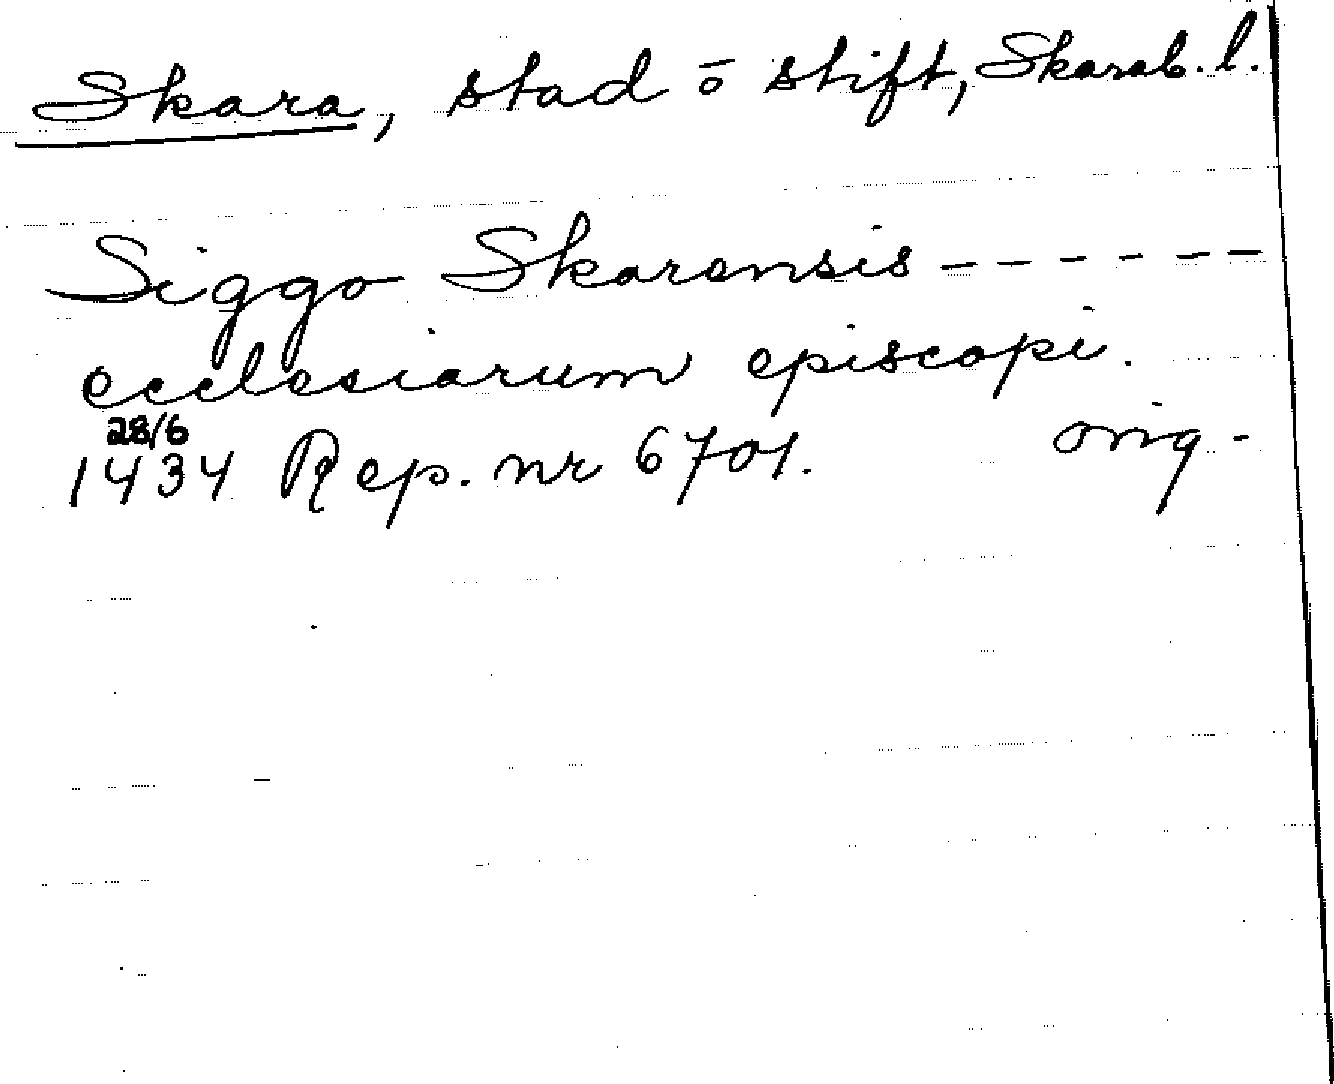 Skara, stad o stift, Skarab. l.
Siggo Skarensis - - - - - -
ecclesiarum episcopi.
28/6
1434 Rep. nr 6701. orig -